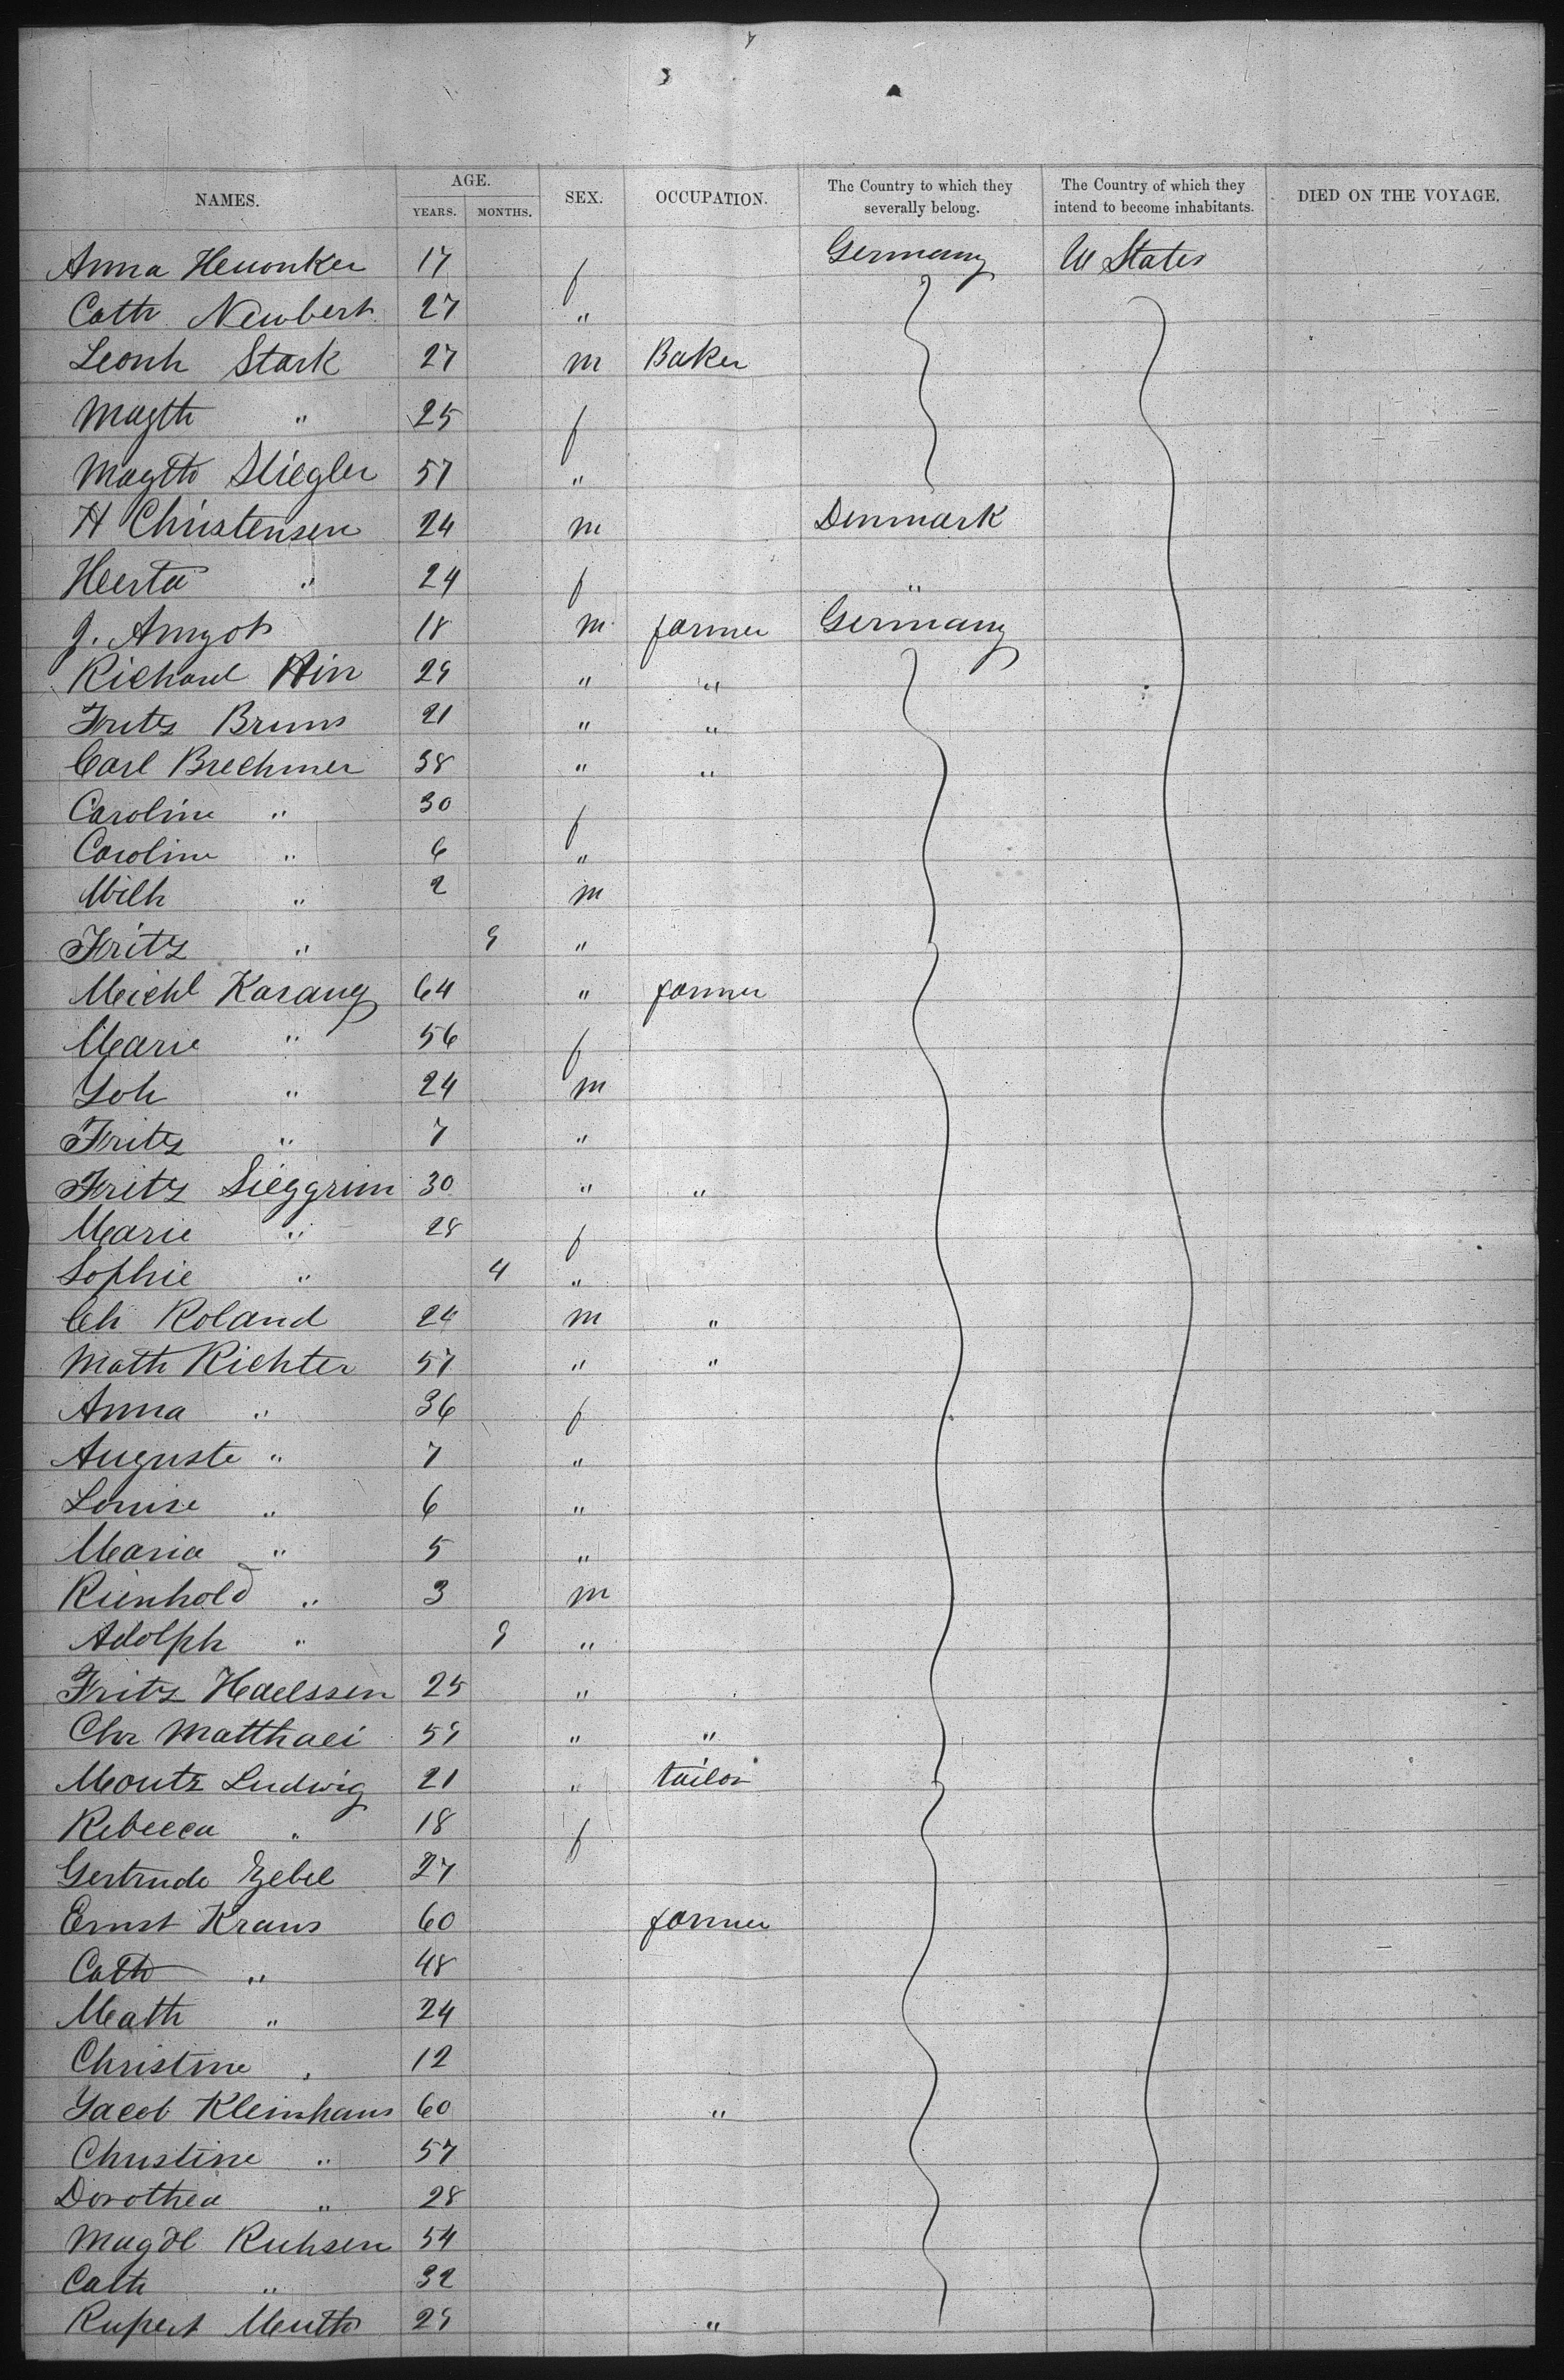 NAMES. AGE. YEARS. MONTHS. SEX. OCCUPATION. The Country to which they severally belong. The Country of which they intend to become inhabitants. DIED ON THE VOYAGE.
Anna 17 f Germany U States
Cath Newbert 27 "
Leonh Stark 27 m Baker
Magth " 25 f
Magth Stiegler 57 "
H Christensen 24 m Denmark
Herta " 24 f "
J. Amgot 18 m farmer Germany
Richard Hin 29 " "
Fritz Bruns 21 " "
Carl Brechmer 38 " "
Caroline " 30 f
Caroline " 6 "
Wilh " 2 m
Fritz " 9 "
Michl Karang 64 " farmer
Marie " 56 f
Joh " 24 m
Fritz " 7 "
Fritz Sieggrim 30 " "
Marie " 28 f
Sophie " 4 "
Ch Roland 24 m "
Math Richter 57 " "
Anna " 36 f
Auguste " 7 "
Louise " 6 "
Maria " 5 "
Rienhold " 3 m
Adolph " 9 "
Fritz Haelssen 25 "
Chr Matthaei 59 " "
Moritz Ludwig 21 " tailor
Rebecca " 18 f
Gertrude Zebel 27
Ernst Kraus 60 farmer
Cath " 48
Math " 24
Christine " 12
Jacob Kleinhans 60 "
Christine " 57
Dorothea " 28
Magdl Ruhsen 54
Cath " 32
Rupert Muth 29 "